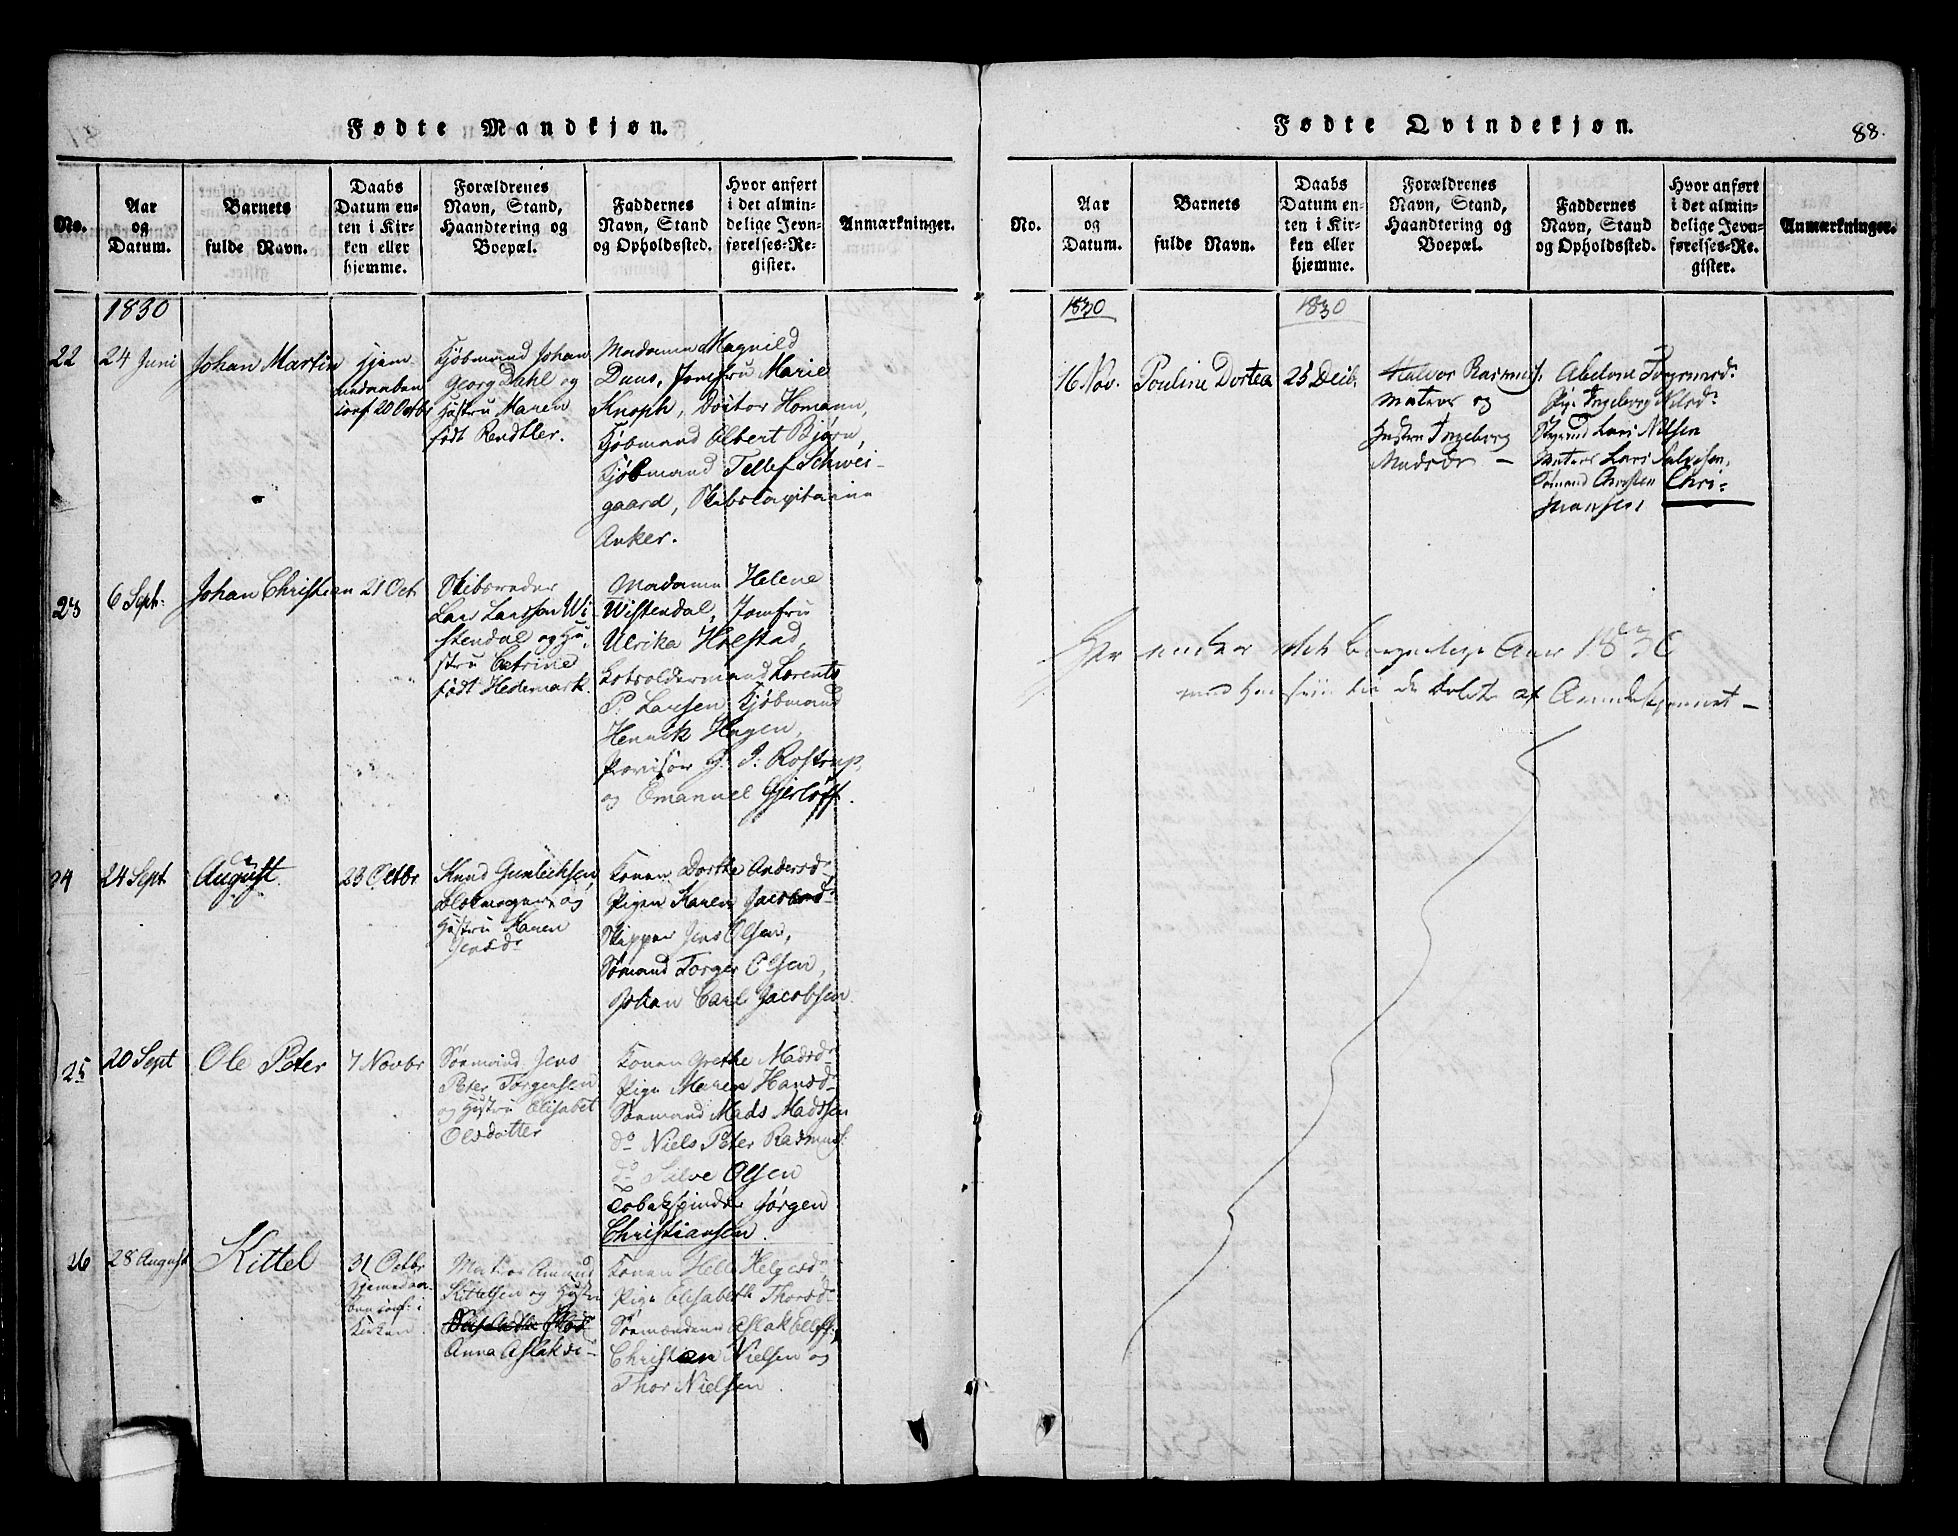 Fødte Mandkjøn.
No.
Aar
og
Datum.
Barnets
fulde Navn.
Daabs
Datum en-
ten i Kir-
ken eller
hjemme.
Forældrenes
Navn, Stand,
Haandtering og
Boepæl.
Faddernes
Navn, Stand
og Opholdssted.
Hvor anført
i det almin-
delige Jevn-
førelses-Re-
gister.
Anmærkninger.
1830
22
24 Juni
Johan Martin
hjem
medaaben
conf 20 Octbr
Kjøbmand Johan
Georg Dahl og
Hustru Maren
født Rendtler.
Madame Magnild
Duus, Jomfru Marie
Knoph, Doctor Homann,
Kjøbmand Albert Bjørn,
Kjøbmand Tellef Schwei-
gaard, Skibscapitaine
Anker.
23
6 Sept:
Johan Christian
21 Oct
Skibsreder
Lars Larsson Wi-
stendal og Hu-
stru Catrine
født Hedemark.
Madame Helene
Wistendal, Jomfru
Ulrika Holstad,
Lorents
P. Larsen, Kjøbmand
Henrik Hagen,
Provisor G. P. Rostrup,
og Emanuel Gjerløff.
24
24 Sept
August.
23 Octbr
Knud Gunlechsen,
Blokmager og
Hustru Karen
Jensdr
Konen Dorthe Andersdr
Pigen Karen Jacobsdr
Skipper Jens Olsen,
Sømand Torger Olsen,
Johan Carl Jacobsen.
25
20 Sept
Ole Peter
7 Novbr
Sømand Jens
Peter Torgersen
og Hustru Elisabet
Olsdatter
Konen Grethe Madsdr
Pige Maren Hansd-
Sømand Mads Madssen
do Niels Peter Rasmus:
do Silve Olsen
Tobakspinder Jørgen
Christiansen.
26
28 August
Kittel
31 Octbr
hjemedaa-
ben conf: i
Kirken.
Matros Amund
Kittelsen og Hustru
Anna Aslaksd-
Konen Helle Helgesdr
Pige Elisabeth Thorsd-
Sømændene Aslak
Christian Nielsen og
Thor Nielsen.
Fødte Qvindekjøn.
88.
No.
Aar
og
Datum.
Barnets
fulde Navn.
Daabs
Datum en-
ten i Kir-
ken eller
hjemme.
Forældrenes
Navn, Stand,
Haandtering og
Boepæl.
Faddernes
Navn, Stand
og Opholdssted.
Hvor anført
i det almin-
delige Jevn-
førelses-Re-
gister.
Anmærkninger.
1830
1830
16 Nov.
Pouline Dortea
25 Decb.
Halvor Rasmus:
Matros og
Hustru Ingeborg
Madsdr –
Abelone
Pige Ingeborg Nilsdr
Lars Nilsen
Matros Lars Salvesen,
Sømand Christen Chri-
stiansen,
Her ender det borgerlige Aar 1830
med Hensyn til de Døbte af Qvindekjønnet –